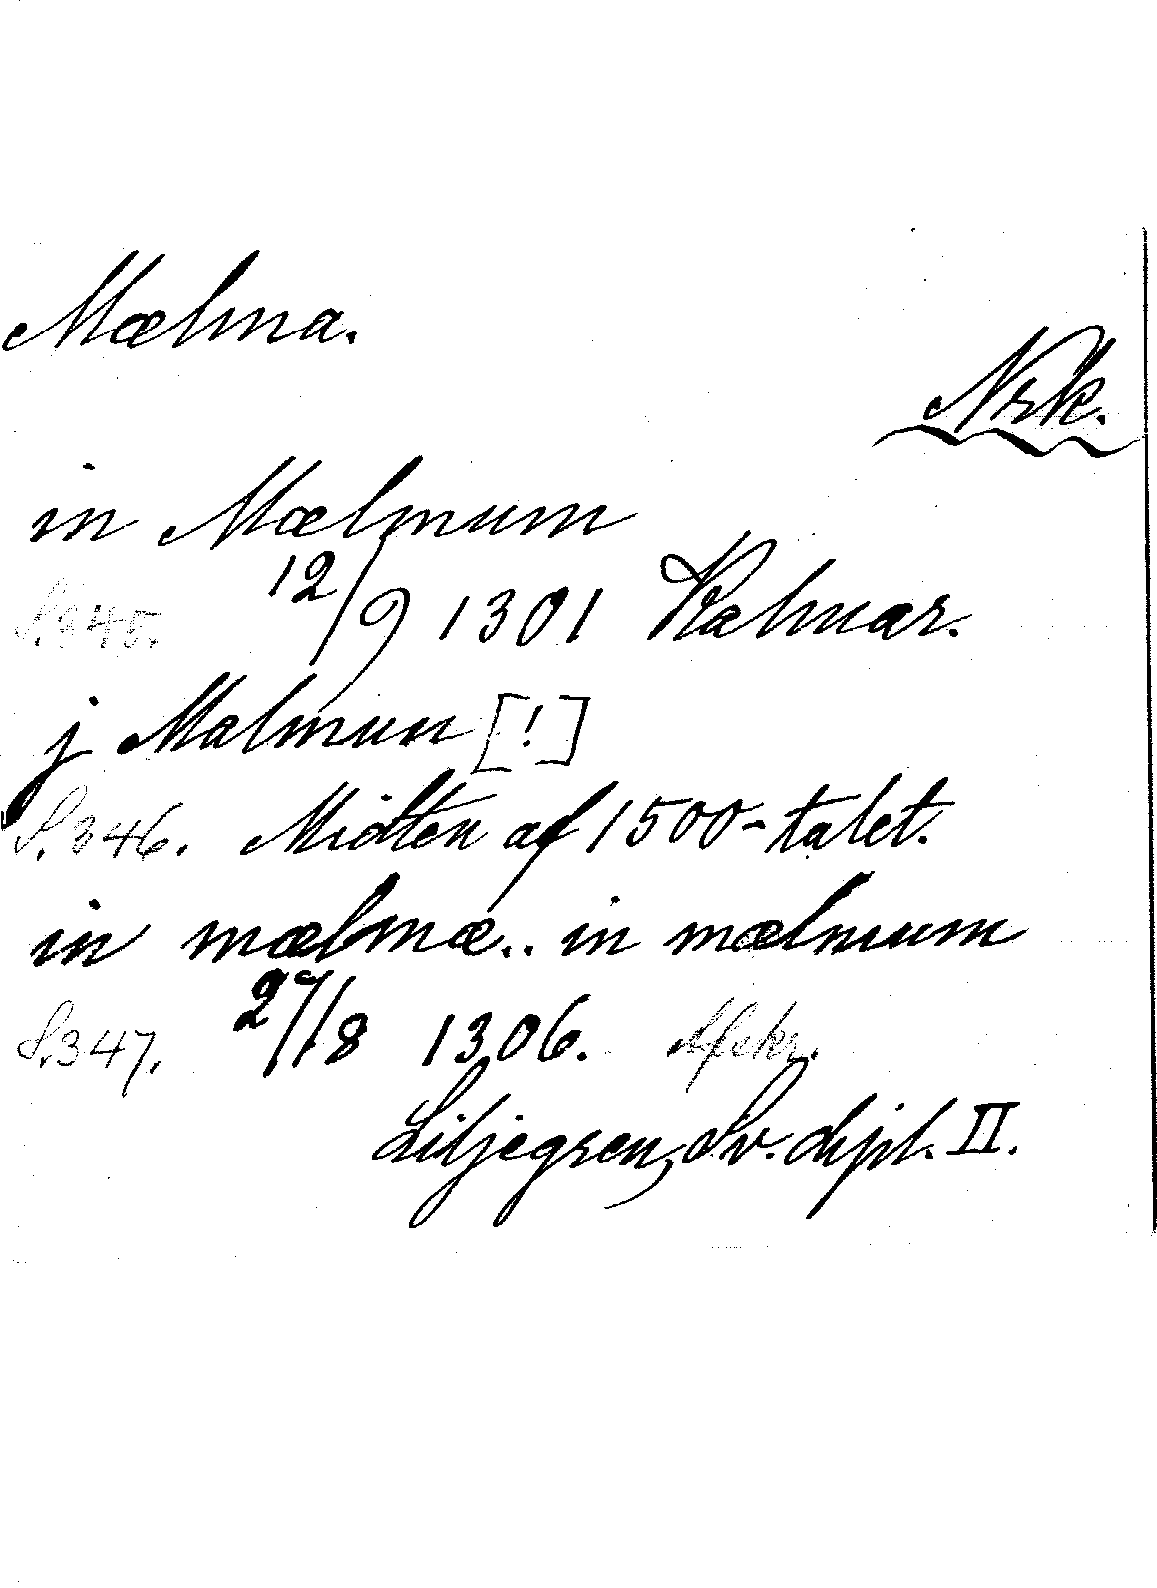 Mælma.
Nrk.
in Mælmum
S. 345. 12/9 1301 Kalmar.
j Malmun [!]
S. 346. Midten af 1500-talet.
in mælmæ.. in mælmum
S. 347. 27/8 1306. Afskr.
Liljegren, Sv. dipl. II.